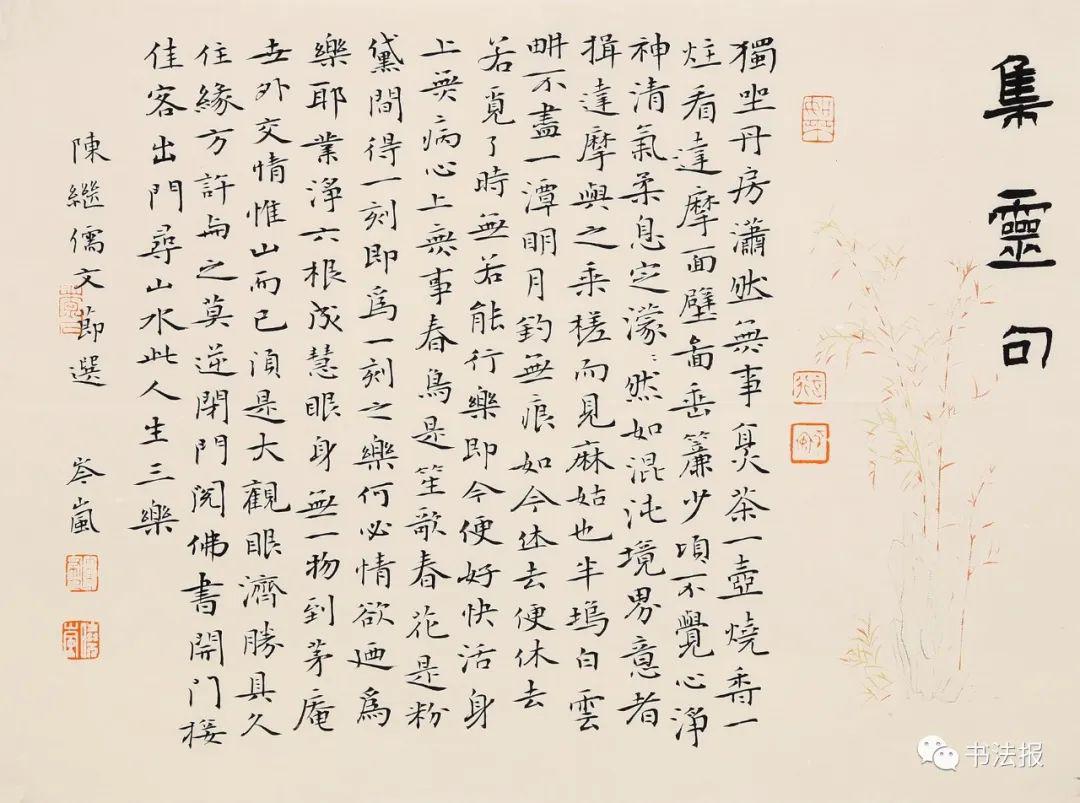 集靈句
獨坐丹房瀟然無事烹茶一壺燒香一
炷看達摩面壁畵垂簾少頃不覺心淨
神清氣柔息定濛〻然如混沌境界意者
揖達摩與之乘槎而見麻姑也半塢白雲
畊不盡一潭明月釣無痕如今休去便休去
若覓了時無若能行樂即今便好快活身
上無病心上無事春鳥是笙歌春花是粉
黛閒得一刻即爲一刻之樂何必情欲迺爲
樂耶業淨六根成慧眼身無一物到茅庵
世外交情惟山而已須是大觀眼濟勝具久
住緣方許與之莫逆閉門閱佛書開門接
佳客出門尋山水此人生三樂
陳繼儒文節選 岑嵐
书法报